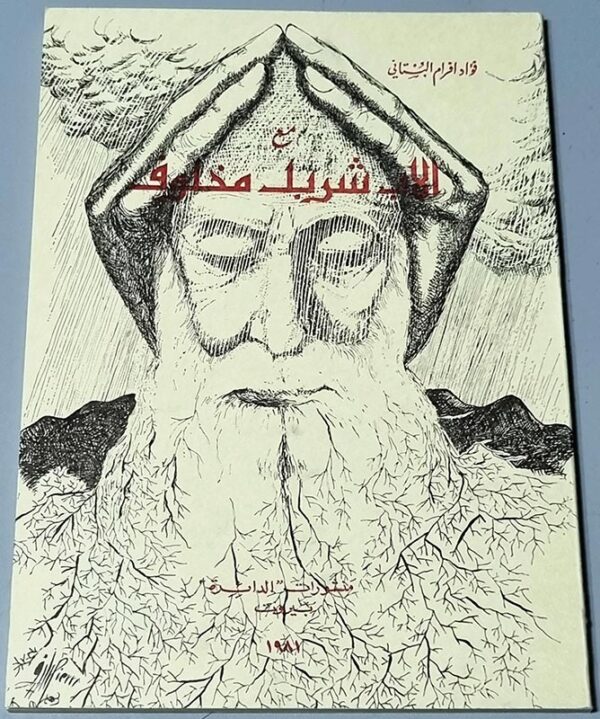 فؤاد افرام البستاني
مع
الاب شربل مخلوف
منشورات "الدائرة"
بيروت
١٩٨١